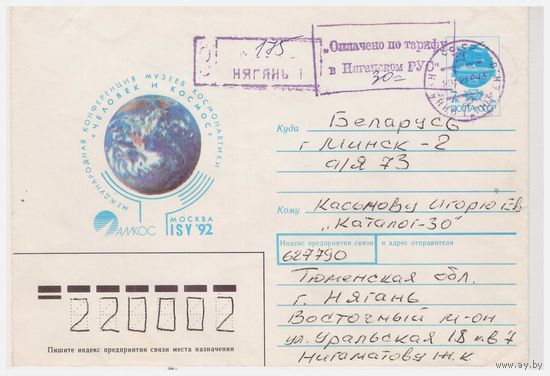 175
НЯГАНЬ 1
„Оплачено по тарифу
в Няганском РУС"
30=
ПОЧТА СССР
МЕЖДУНАРОДНАЯ КОНФЕРЕНЦИЯ МУЗЕЕВ КОСМОНАВТИКИ
"ЧЕЛОВЕК И КОСМОС"
АМКОС
МОСКВА
ISY '92
Куда Беларусь
г Минск-2
а/я 73
Кому Касымову Игорю Ев
„Каталог-30"
Индекс предприятия связи и адрес отправителя
627790
Тюменская обл.
г. Нягань
Восточный м-он
ул. Уральская 18 кв 7
Нигаматову Ж.К
220002
Пишите индекс предприятия связи места назначения
www.ay.by